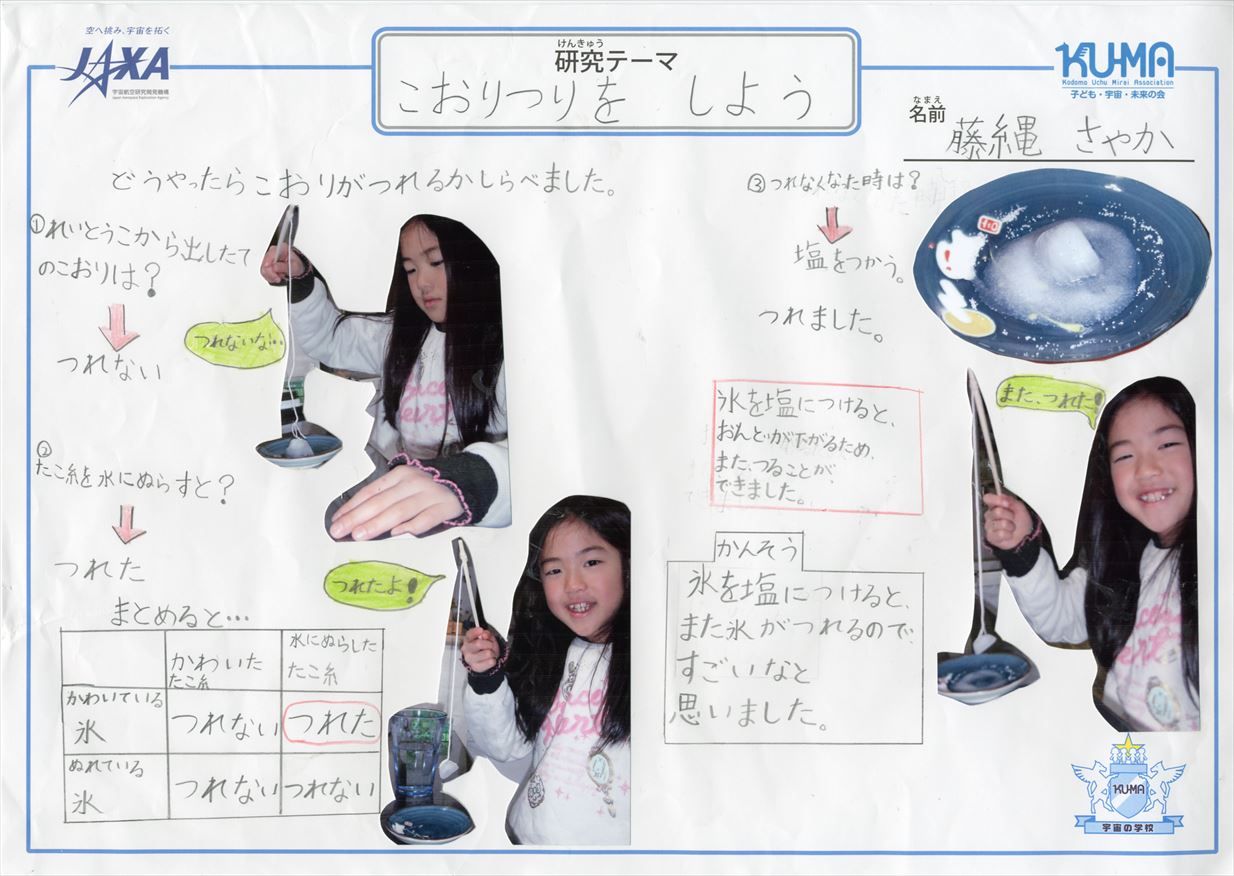 空へ挑み、宇宙を拓く
JAXA
宇宙航空研究開発機構
Japan Aerospace Exploration Agency
けんきゅう
研究テーマ
こおりつりを しよう
KU-MA
Kodomo Uchu Mirai Association
子ども・宇宙・未来の会
なまえ
名前
藤縄 さやか
どうやったらこおりがつれるかしらべました。
①れいとうこから出したて
のこおりは?
つれない
つれないな…
②
たこ糸を水にぬらすと?
つれた
つれたよ!
まとめると…
かわいた
たこ糸
水にぬらした
たこ糸
かわいている
氷
つれない
つれた
ぬれている
氷
つれない
つれない
③つれなくなった時は?
塩をつかう。
つれました。
また、つれた!
氷を塩につけると、
おんどが下がるため、
また、つることが、
できました。
かんそう
氷を塩につけると、
また氷がつれるので、
すごいなと
思いました。
KU-MA
宇宙の学校